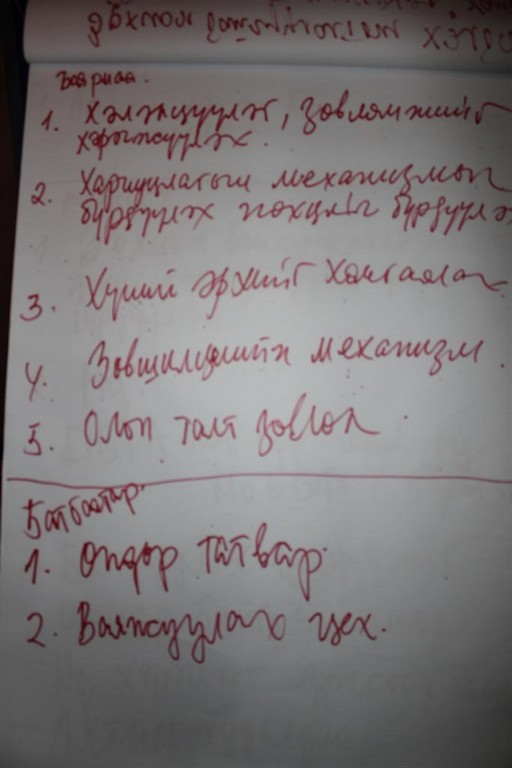 Баярмаа.
1. Хэлэлцүүлэг, зөвлөмжийг
хэрэгжүүлэх.
2. Хариуцлагын механизмын
бүрдүүлэх нөхцлийг бүрдүүлэх
3. Хүний эрхийг хангалах.
4. Зөвшилцлийн механизм.
5. Олон талт зөвлөл.
Батбаатар.
1. Өндөр татвар.
2. Баяжуулах цех.